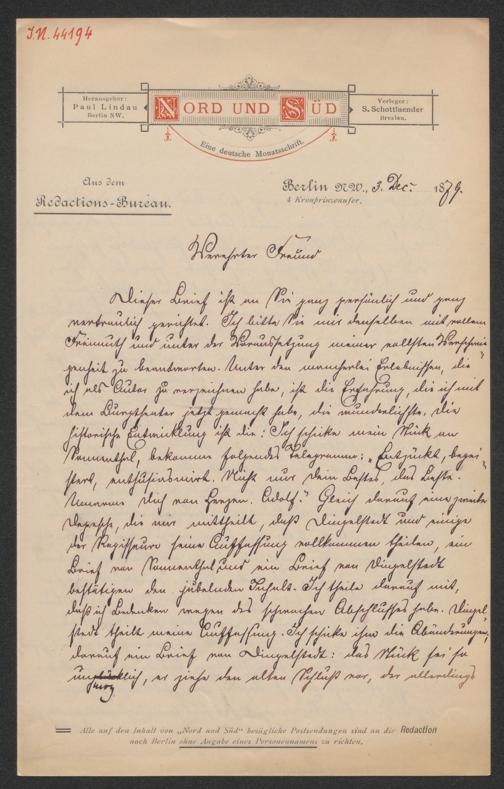 J.N. 44194
Herausgeber:
Paul Lindau
Berlin NW.
NORD UND SÜD
Verleger:
S. Schottlaender
Breslau.
Eine deutsche Monatsschrift.
Aus dem
Redactions-Bureau.
Berlin NW., 3. Dec. 1879.
4 Kronprinzenufer.
Verehrter Freund
Dieser Brief ist an Sie ganz persönlich und ganz
vertraulich gerichtet. Ich bitte Sie mir denselben mit vollem
Freimuth und unter der Voraussetzung meiner vollsten Verschwie-
genheit zu beantworten. Unter den mancherlei Erlebnissen, die
ich als Autor zu verzeichnen habe, ist die Erfahrung, die ich mit
dem Burgtheater jetzt gemacht habe, die wunderlichste. Die
historische Entwicklung ist die: Ich schicke mein Stück an
Sonnenthal, bekomme folgendes Telegramm: „Entzückt, begei-
stert, enthusiasmirt. Nicht nur Dein Bestes, das Beste.
Umarme Dich von Herzen. Adolf." Gleich darauf eine zweite
Depesche, die mir mittheilt, daß Dingelstedt und einige
der Regisseure seine Auffassung vollkommen theilen, ein
Brief von Sonnenthal und ein Brief von Dingelstedt
bestätigen den jubelnden Inhalt. Ich theile darauf mit,
daß ich Bedenken wegen des schwachen Abschlusses habe. Dingel-
stedt theilt meine Auffassung. Ich schicke ihm die Abänderungen,
darauf ein Brief von Dingelstedt: das Stück sei so
unmög­lich, er ziehe den alten Schluß vor, der allerdings
Alle auf den Inhalt von „Nord und Süd" bezügliche Postsendungen sind an die Redaction
nach Berlin ohne Angabe eines Personennamens zu richten.